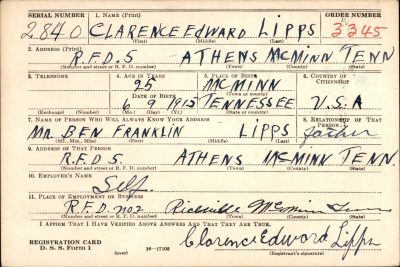 SERIAL NUMBER 1. NAME (Print) ORDER NUMBER
2840 CLARENCE EDWARD LIPPS 3345
(First) (Middle) (Last)
2. ADDRESS (Print)
R.F.D.5 ATHENS McMINN TENN
(Number and street or R. F. D. number) (Town) (County) (State)
3. TELEPHONE 4. AGE IN YEARS 5. PLACE OF BIRTH 6. COUNTRY OF CITIZENSHIP
25 McMINN
DATE OF BIRTH (Town or county)
6 9 1915 TENNESSEE U.S.A
(Exchange) (Number) (Mo.) (Day) (Yr.) (State or country)
7. NAME OF PERSON WHO WILL ALWAYS KNOW YOUR ADDRESS 8. RELATIONSHIP OF THAT PERSON
MR. BEN FRANKLIN LIPPS father
(Mr., Mrs., Miss) (First) (Middle) (Last)
9. ADDRESS OF THAT PERSON
R.F.D 5. ATHENS McMINN TENN.
(Number and street or R. F. D. number) (Town) (County) (State)
10. EMPLOYER'S NAME
Self
11. PLACE OF EMPLOYMENT OR BUSINESS
R.F.D. no 2 Riceville McMinn Tenn
(Number and street or R. F. D. number) (Town) (County) (State)
I AFFIRM THAT I HAVE VERIFIED ABOVE ANSWERS AND THAT THEY ARE TRUE.
REGISTRATION CARD Clarence Edward Lipps
D. S. S. Form 1 (over) 16—17105 (Registrant's signature)